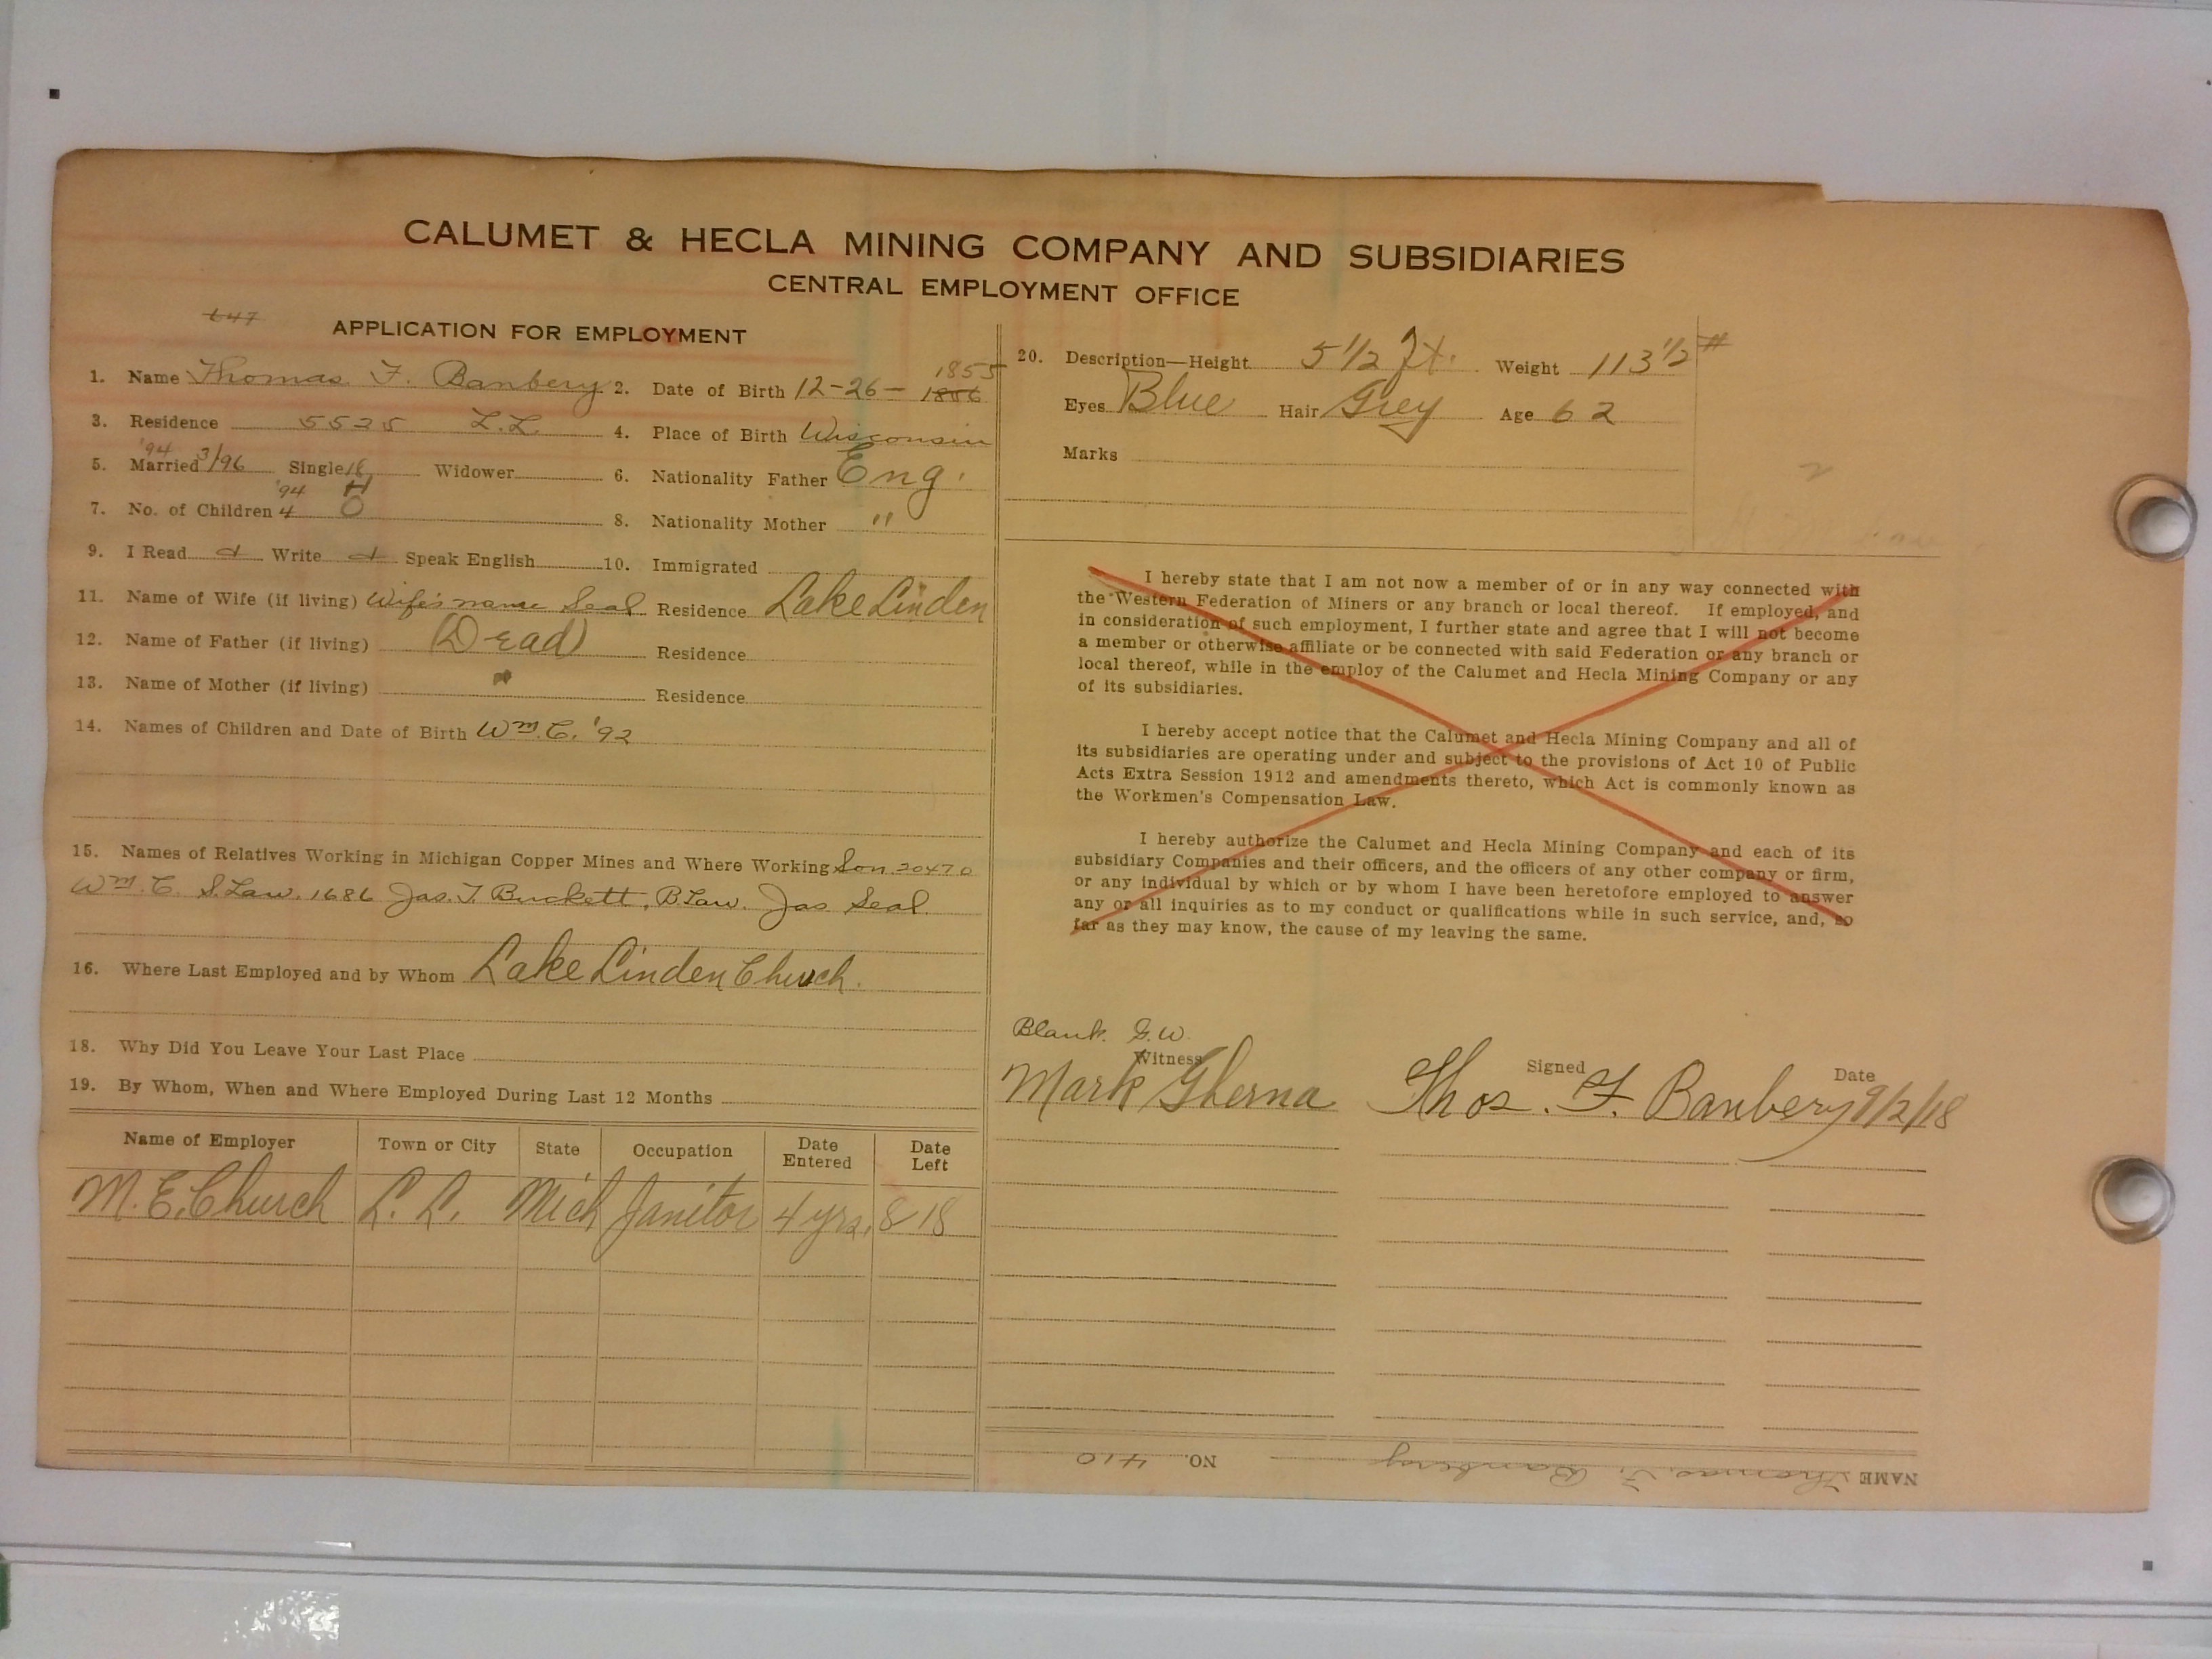 CALUMET & HECLA MINING COMPANY AND SUBSIDIARIES
CENTRAL EMPLOYMENT OFFICE
APPLICATION FOR EMPLOYMENT
1. Name Thomas F. Banbery 2. Date of Birth 12-26- 1856 1855
3. Residence 5535 L.L. 4. Place of Birth Wisconsin
5. Married '94 3/96 Single 18 Widower 6. Nationality Father Eng.
7. No. of Children '94 4 0 8. Nationality Mother "
9. I Read Write Speak English 10. Immigrated
11. Name of Wife (if living) Wife's name Seal Residence Lake Linden
12. Name of Father (if living) (Dead) Residence
13. Name of Mother (if living) " Residence
14. Names of Children and Date of Birth Wm. C. '92
15. Names of Relatives Working in Michigan Copper Mines and Where Working Son 20470
Wm. C. S. Law. 1686 Jas. T. Buckett, B Law. Jas Seal
16. Where Last Employed and by Whom Lake Linden Church.
18. Why Did You Leave Your Last Place
19. By Whom, When and Where Employed During Last 12 Months
Name of Employer Town or City State Occupation Date Entered Date Left
M. E. Church L. L. Mich Janitor 4 yrs. 8 18
20. Description—Height 5 1/2 Ft. Weight 113 1/2 #
Eyes Blue Hair Grey Age 62
Marks
I hereby state that I am not now a member of or in any way connected with
the Western Federation of Miners or any branch or local thereof. If employed, and
in consideration of such employment, I further state and agree that I will not become
a member or otherwise affiliate or be connected with said Federation or any branch or
local thereof, while in the employ of the Calumet and Hecla Mining Company or any
of its subsidiaries.
I hereby accept notice that the Calumet and Hecla Mining Company and all of
its subsidiaries are operating under and subject to the provisions of Act 10 of Public
Acts Extra Session 1912 and amendments thereto, which Act is commonly known as
the Workmen's Compensation Law.
I hereby authorize the Calumet and Hecla Mining Company and each of its
subsidiary Companies and their officers, and the officers of any other company or firm,
or any individual by which or by whom I have been heretofore employed to answer
any or all inquiries as to my conduct or qualifications while in such service, and, so
far as they may know, the cause of my leaving the same.
Blank. G.W.
Witness Signed Date
Mark Gherna Thos. F. Banbery 9/2/18
NAME Thomas F. Banbery NO. 410